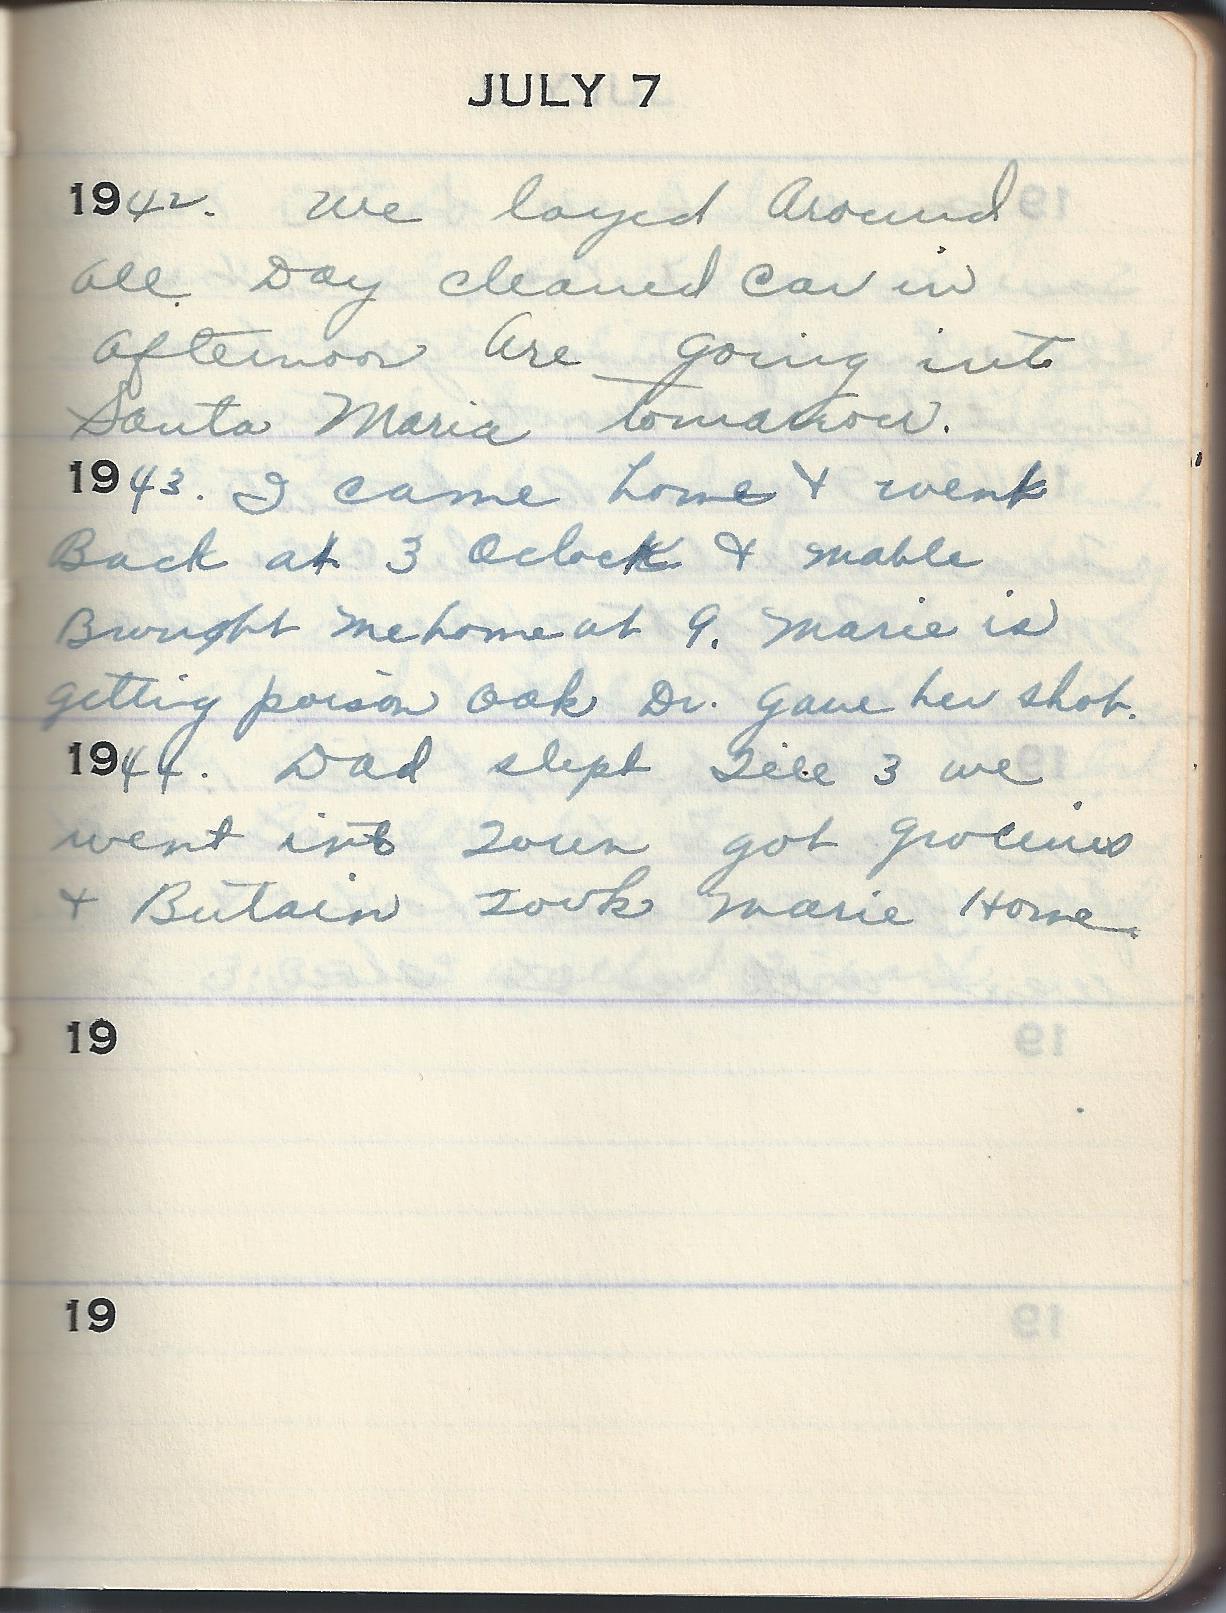 JULY 7
1942. We layed Around
All Day cleaned Car in
Afternoon Are going into
Santa Maria tomarrow.
1943. I came home & went
Back at 3 Oclock & Mable
Brought me home at 9. Marie is
getting poison Oak Dr. gave her shot.
1944. Dad slept Till 3 we
went into Town got Groceries
& Butain Took Marie Home
19
19